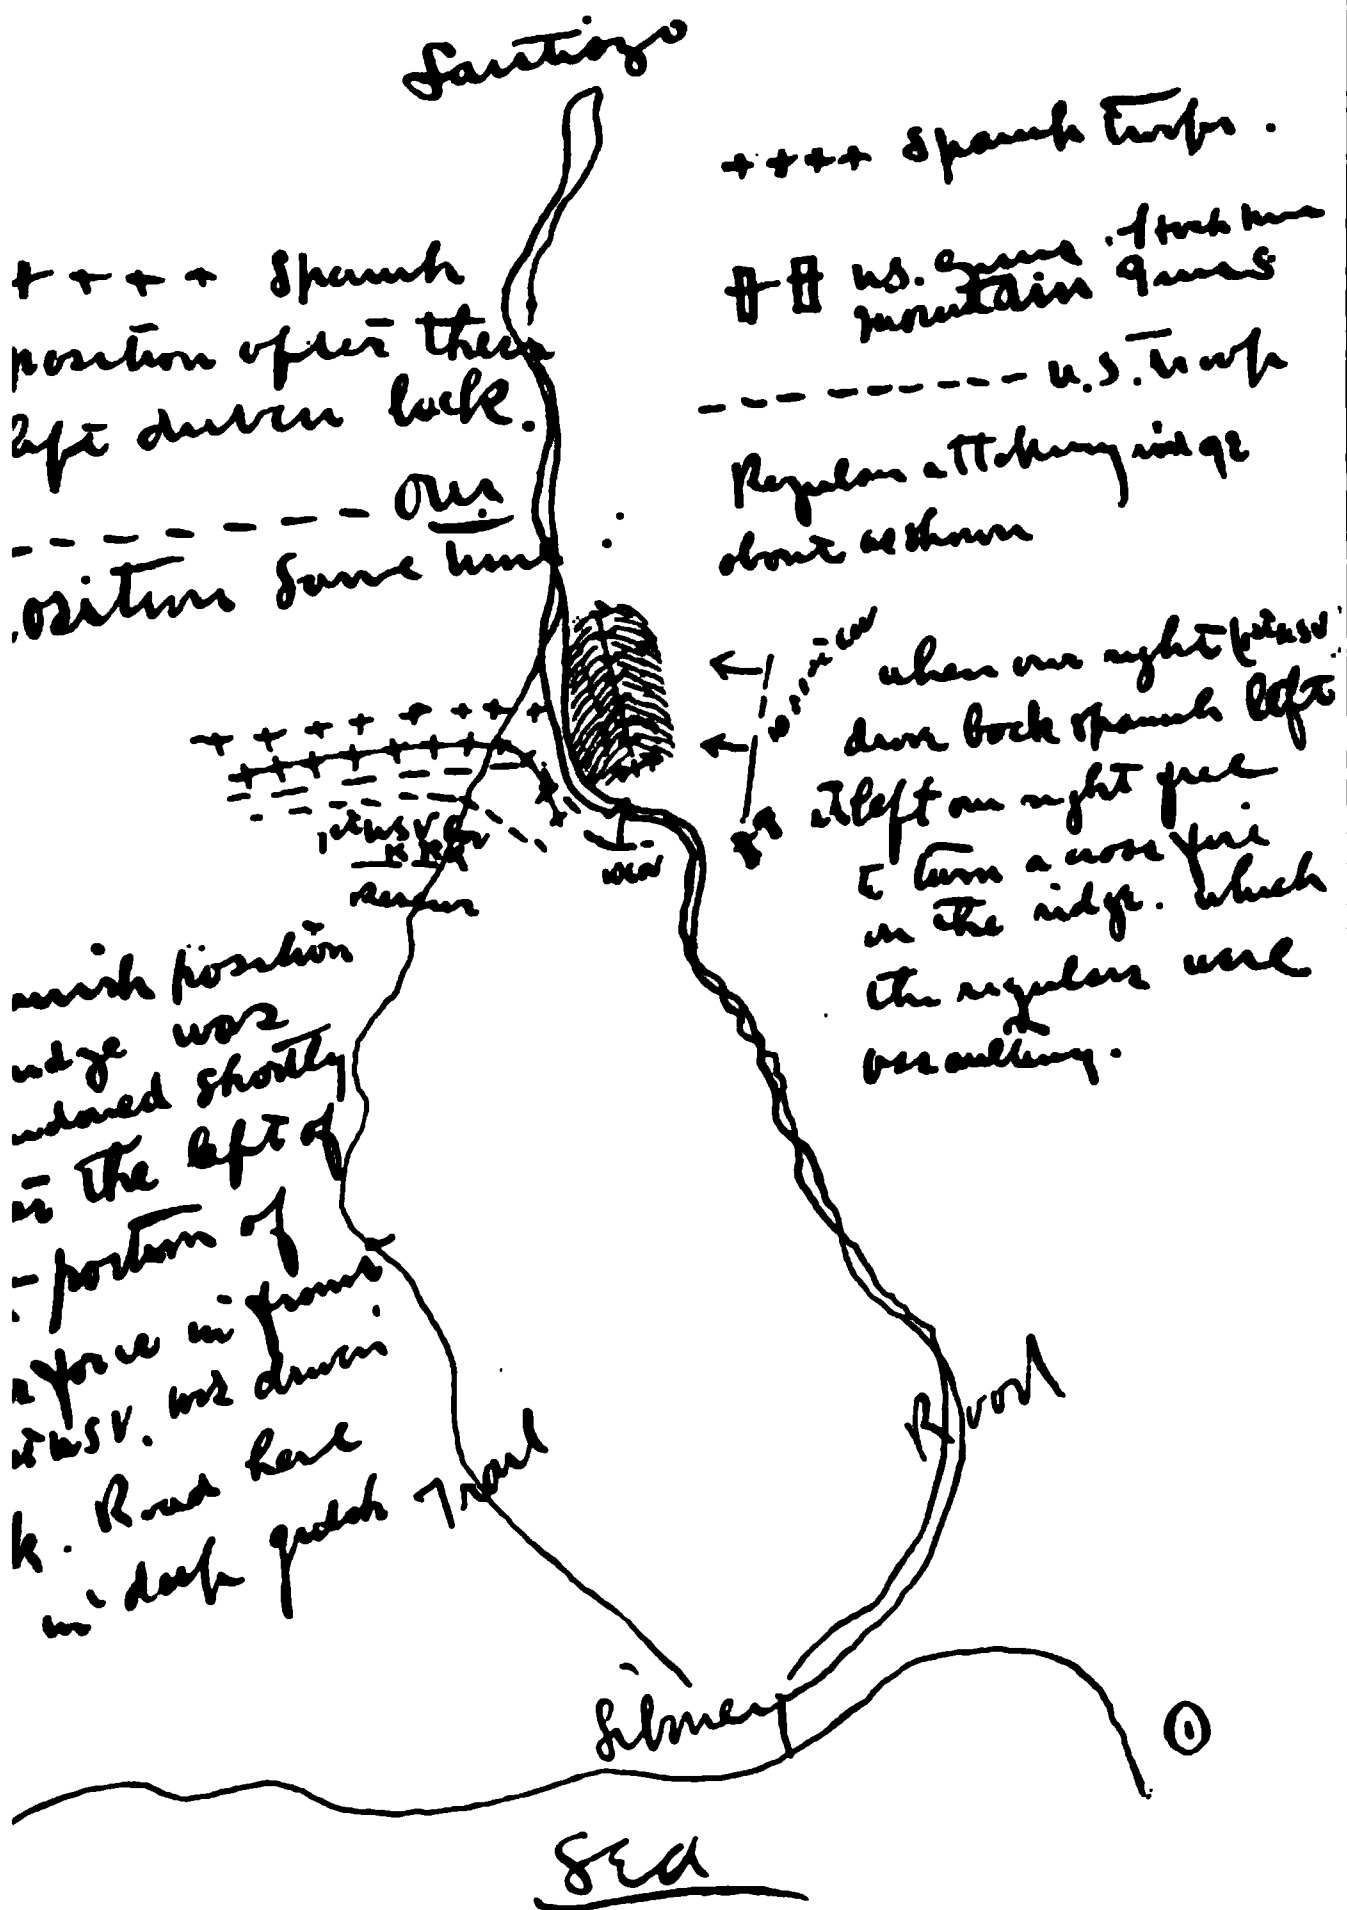 Santiago
++++ Spanish troops.
U.S. guns. Hotchkiss
mountain guns
--------- U.S. troops
Regulars attacking ridge
about as shown
++++ Spanish
position after their
left driven back.
------- Our
position same time
when our right 1st USV
drove back Spanish left
it left our right free
to turn a cross fire
on the ridge. which
the regulars were
assaulting.
1st USV
Reserves
nish position
ridge was
ndoned shortly
the left of
portion of
force in front
1st USV. was driven
k. Road here
in deep gulch
Trail
Road
Siboney
Sea